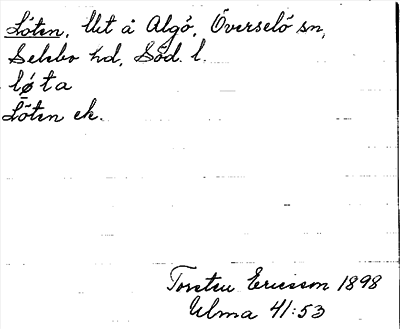 Löten, Utt å Algö, Överselö sn,
Selebo hd, Söd. l.
lø̄ta
Löten ek.
Torsten Ericsson 1898
Ulma 41:53